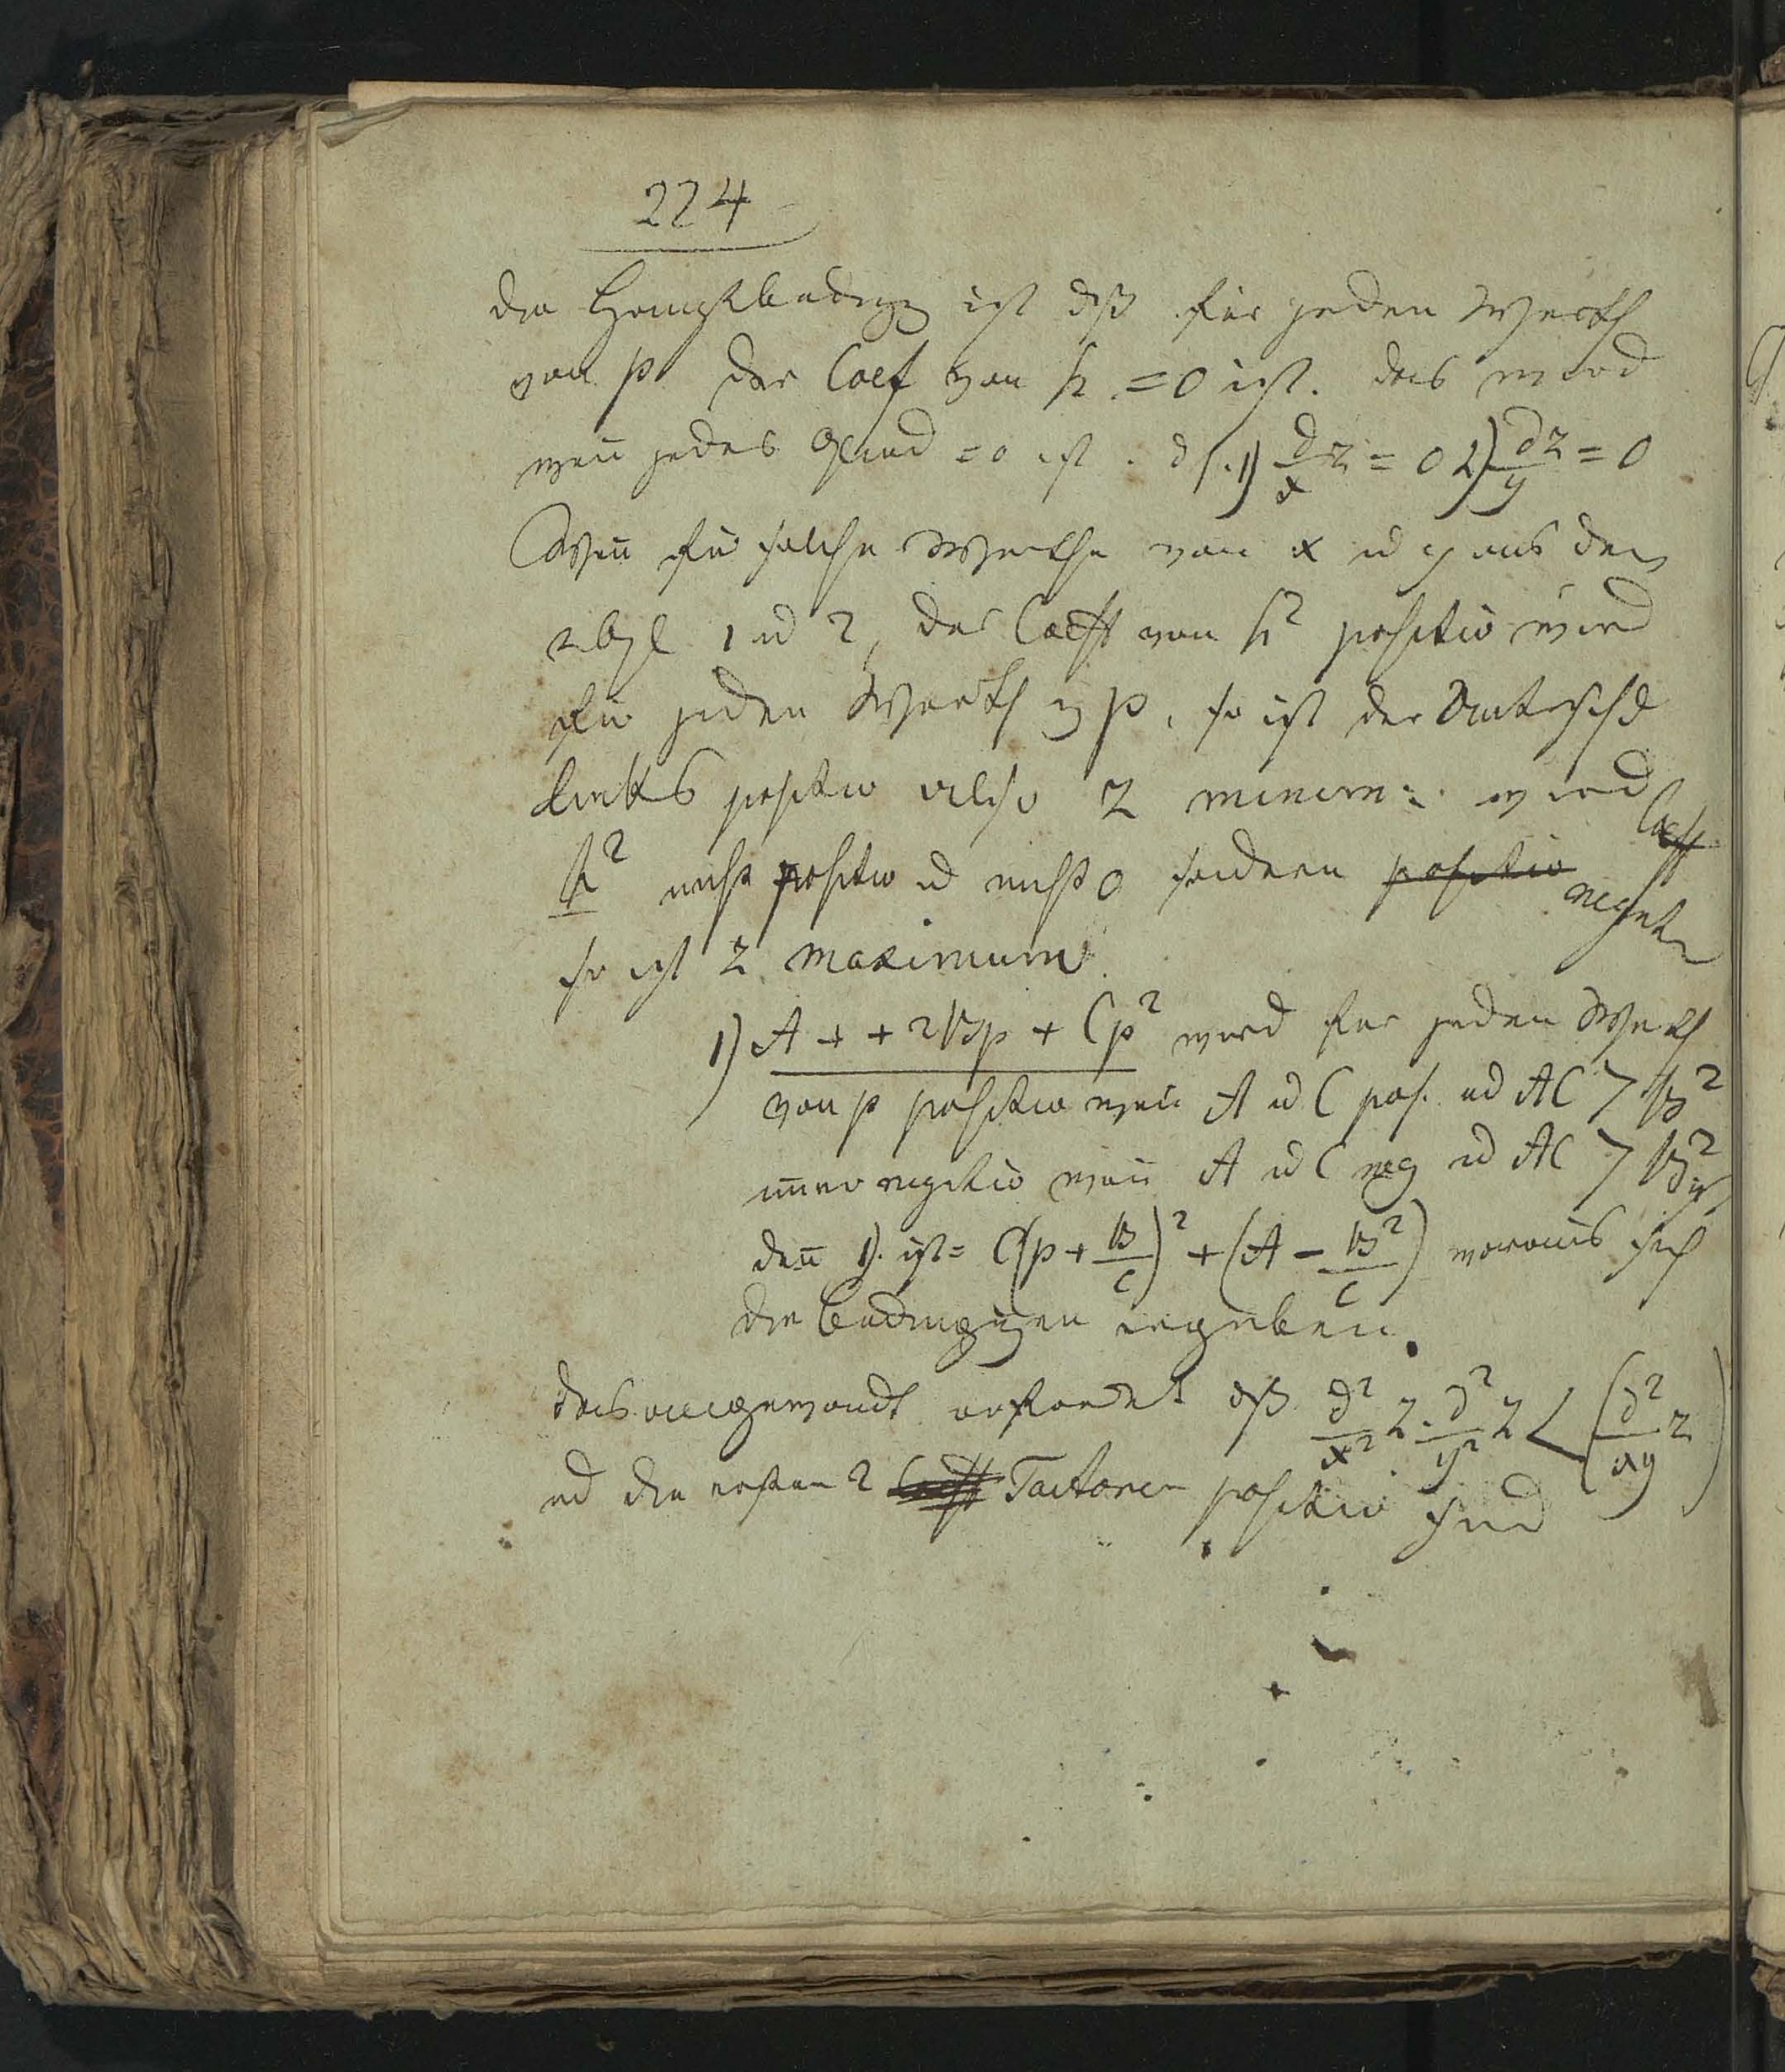 224
die Hauptbedingg ist dß für jeden Werth
von p der Coef von h = 0 ist. das wird
weñ jedes Glied = 0 ist. d. i. 1) d/x z = 0 2) dz/y = 0
Weñ für solche Werthe von x ud y aus den
1 ud 2, der Coeff von h² positiv wird
für jeden Werth v p, so ist der Unterschd
links positiv also z minim: wird
Coeff
h² nicht positiv ud nicht 0 sondern positiv negativ
so ist z maximum
1) A + + 2Bp + Cp² wird für jeden Werth
von p positiv weñ A ud C pos. ud AC > B²
im̃er negativ weñ A ud C neg ud AC > B²
deñ 1). ist = C(p + B/C)² + (A − B²/C) woraus sich
die Bedingungen ergeben.
das angewandt erfordert dß d²/x² z . d²/y² z < (d²/xy z)
ud die ersten 2 Coeff Factoren positiv sind